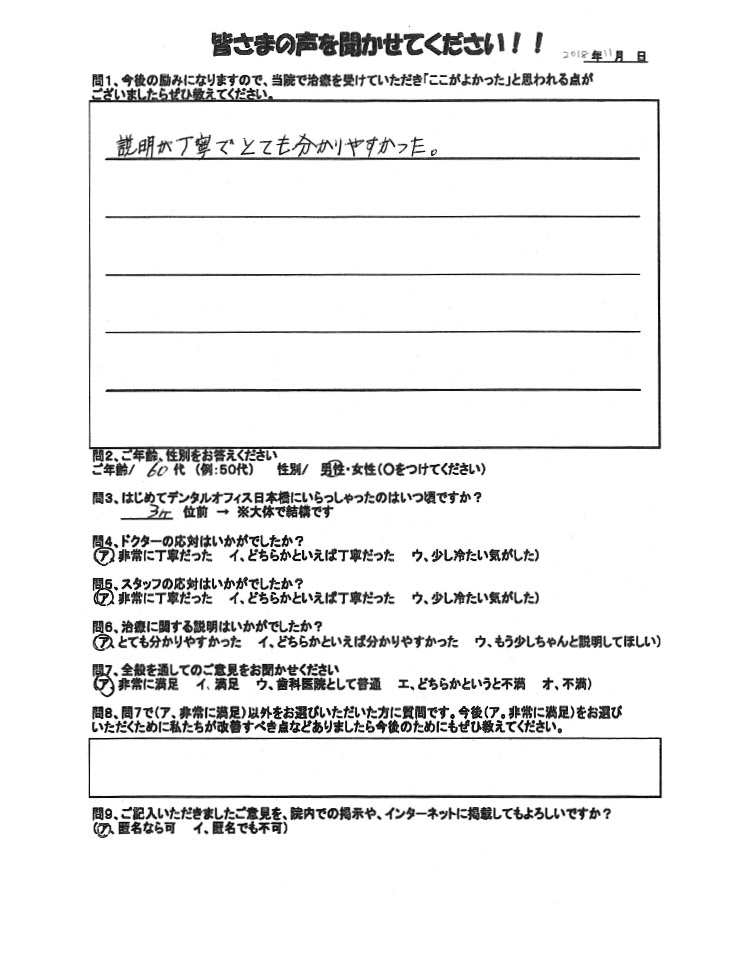 皆さまの声を聞かせてください！！
2018年11月　日
問1、今後の励みになりますので、当院で治療を受けていただき「ここがよかった」と思われる点が
ございましたらぜひ教えてください。
説明が丁寧でとても分かりやすかった。
問2、ご年齢、性別をお答えください
ご年齢/ 60代（例:50代）　性別/ 男性・女性(○をつけてください)
問3、はじめてデンタルオフィス日本橋にいらっしゃったのはいつ頃ですか？
3ヶ 位前 → ※大体で結構です
問4、ドクターの応対はいかがでしたか？
(ア、非常に丁寧だった　イ、どちらかといえば丁寧だった　ウ、少し冷たい気がした)
問5、スタッフの応対はいかがでしたか？
(ア、非常に丁寧だった　イ、どちらかといえば丁寧だった　ウ、少し冷たい気がした)
問6、治療に関する説明はいかがでしたか？
(ア、とても分かりやすかった　イ、どちらかといえば分かりやすかった　ウ、もう少しちゃんと説明してほしい)
問7、全般を通してのご意見をお聞かせください
(ア、非常に満足　イ、満足　ウ、歯科医院として普通　エ、どちらかというと不満　オ、不満)
問8、問7で(ア、非常に満足)以外をお選びいただいた方に質問です。今後(ア。非常に満足)をお選び
いただくために私たちが改善すべき点などありましたら今後のためにもぜひ教えてください。
問9、ご記入いただきましたご意見を、院内での掲示や、インターネットに掲載してもよろしいですか？
(ア、匿名なら可　イ、匿名でも不可)